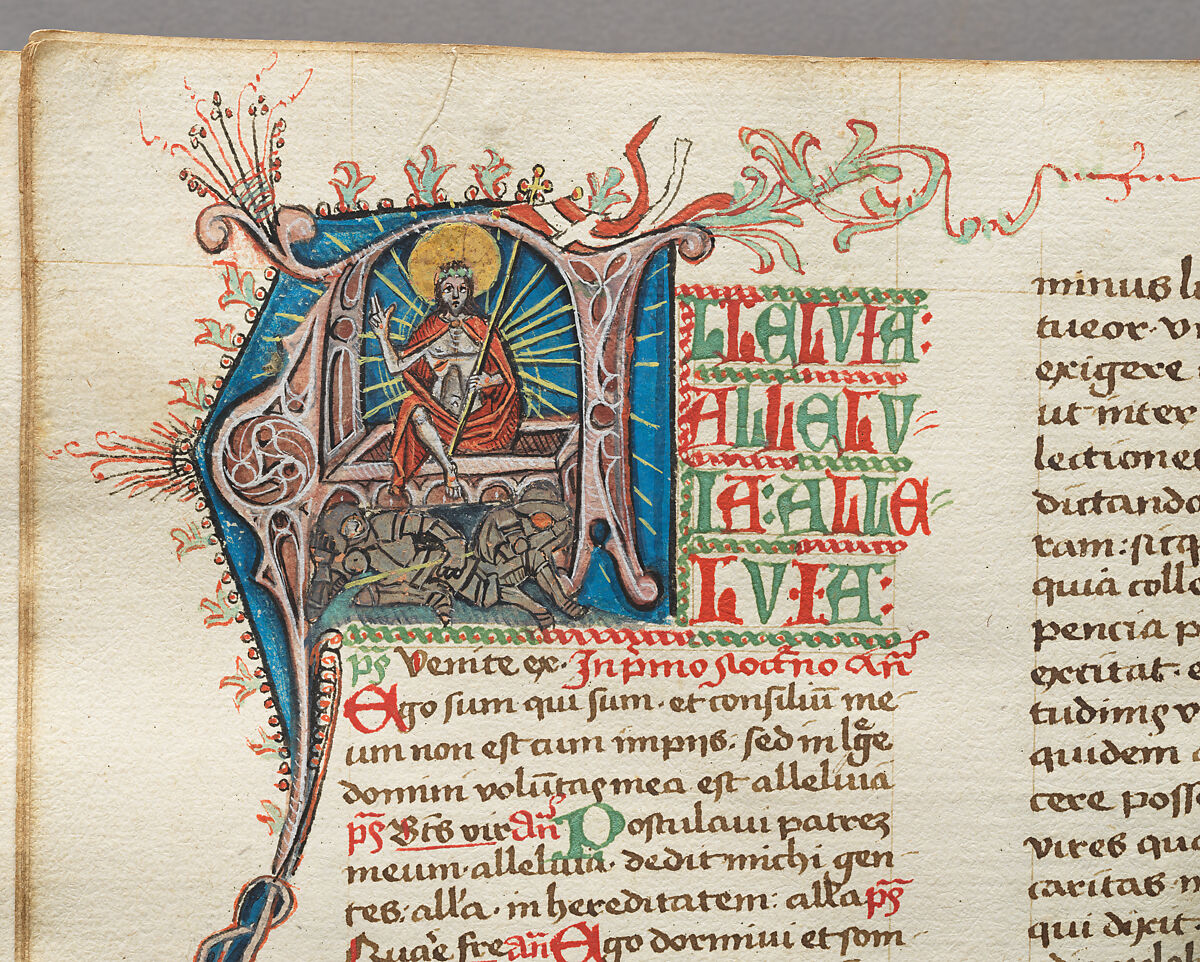 ALLELUIA:
ALLELU
IA: ALLE
LUIA:
p̄s Venite ex. In p̄mo noct̄no an̄
Ego sum qui sum. et consiliū me-
um non est cum impijs. sed in lege
domini volūtas mea est alleluia
p̄s Bt̄s vir an̄ Postulaui patrez
meum. alleluia. dedit michi gen-
tes. all'a. in hereditatem: all'a p̄s
Quar̄e fre an̄ Ego dormiui et som-
minus
tueor. v
exigere
ut inter
lectione
dictando
ram: sicq
quia coll
pencia p
excitat. e
tudinis v
quidem
cere poss
vires qua
caritas
qui dixit